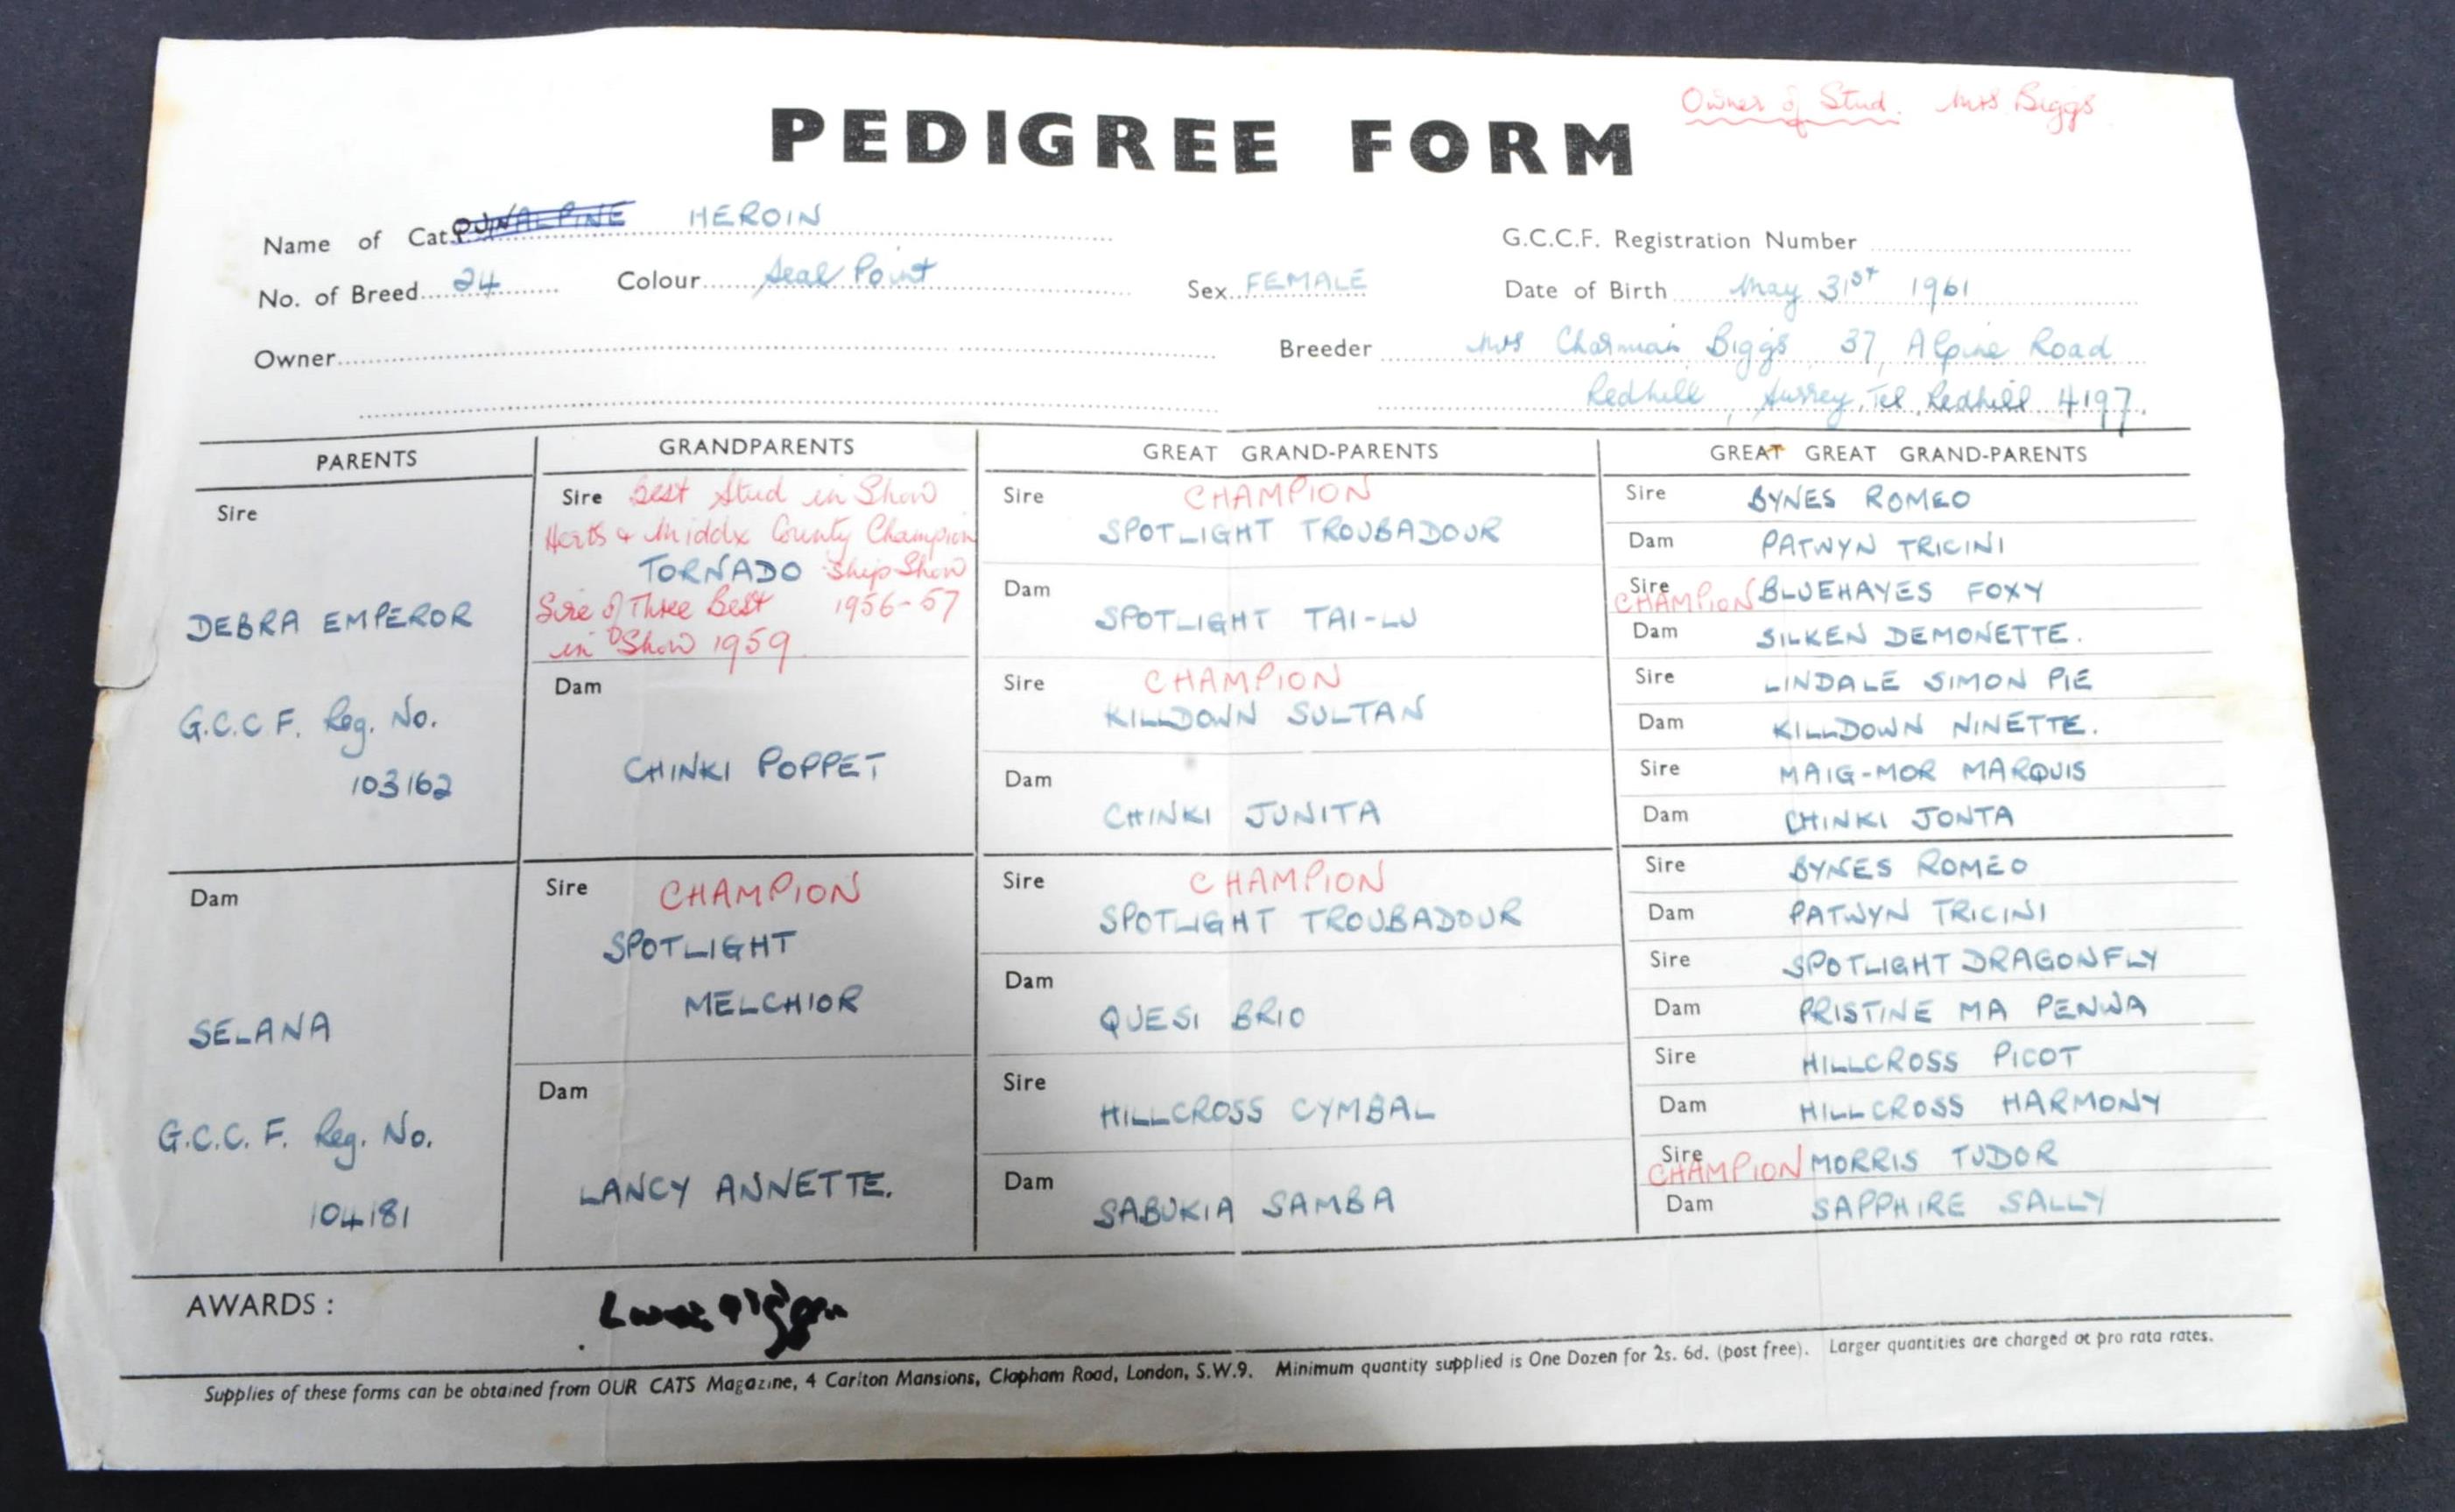 Owner of Stud. Mrs Biggs
PEDIGREE FORM
Name of Cat HEROIN
G.C.C.F. Registration Number
No. of Breed 24 Colour Seal Point Sex FEMALE Date of Birth May 31st 1961
Owner Breeder Mrs Charmian Biggs 37, Alpine Road
Redhill, Surrey, Tel Redhill 4197.
PARENTS GRANDPARENTS GREAT GRAND-PARENTS GREAT GREAT GRAND-PARENTS
Sire
DEBRA EMPEROR
G.C.C F. Reg. No.
103162
Dam
SELANA
G.C.C. F. Reg. No.
104181
Sire Best Stud in Show
Herts & Middx County Champion
TORNADO Ship Show
Sire of Three Best 1956-57
in Show 1959.
Dam
CHINKI POPPET
Sire CHAMPION
SPOTLIGHT
MELCHIOR
Dam
LANCY ANNETTE.
Sire CHAMPION
SPOTLIGHT TROUBADOUR
Dam
SPOTLIGHT TAI-LU
Sire CHAMPION
KILLDOWN SULTAN
Dam
CHINKI JUNITA
Sire CHAMPION
SPOTLIGHT TROUBADOUR
Dam
QUESI BRIO
Sire
HILLCROSS CYMBAL
Dam
SABUKIA SAMBA
Sire BYNES ROMEO
Dam PATWYN TRICINI
Sire
CHAMPION BLUEHAYES FOXY
Dam SILKEN DEMONETTE.
Sire LINDALE SIMON PIE
Dam KILLDOWN NINETTE.
Sire MAIG-MOR MARQUIS
Dam CHINKI JONTA
Sire BYNES ROMEO
Dam PATWYN TRICINI
Sire SPOTLIGHT DRAGONFLY
Dam PRISTINE MA PENWA
Sire HILLCROSS PICOT
Dam HILLCROSS HARMONY
Sire
CHAMPION MORRIS TUDOR
Dam SAPPHIRE SALLY
AWARDS :
Supplies of these forms can be obtained from OUR CATS Magazine, 4 Carlton Mansions, Clapham Road, London, S.W.9. Minimum quantity supplied is One Dozen for 2s. 6d. (post free). Larger quantities are charged at pro rata rates.